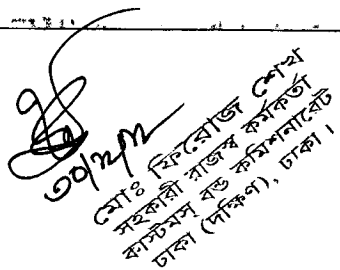 মোঃ ফিরোজ শেখ
সহকারী রাজস্ব কর্মকর্তা
কাস্টমস বন্ড কমিশনারেট
ঢাকা (দক্ষিণ), ঢাকা।